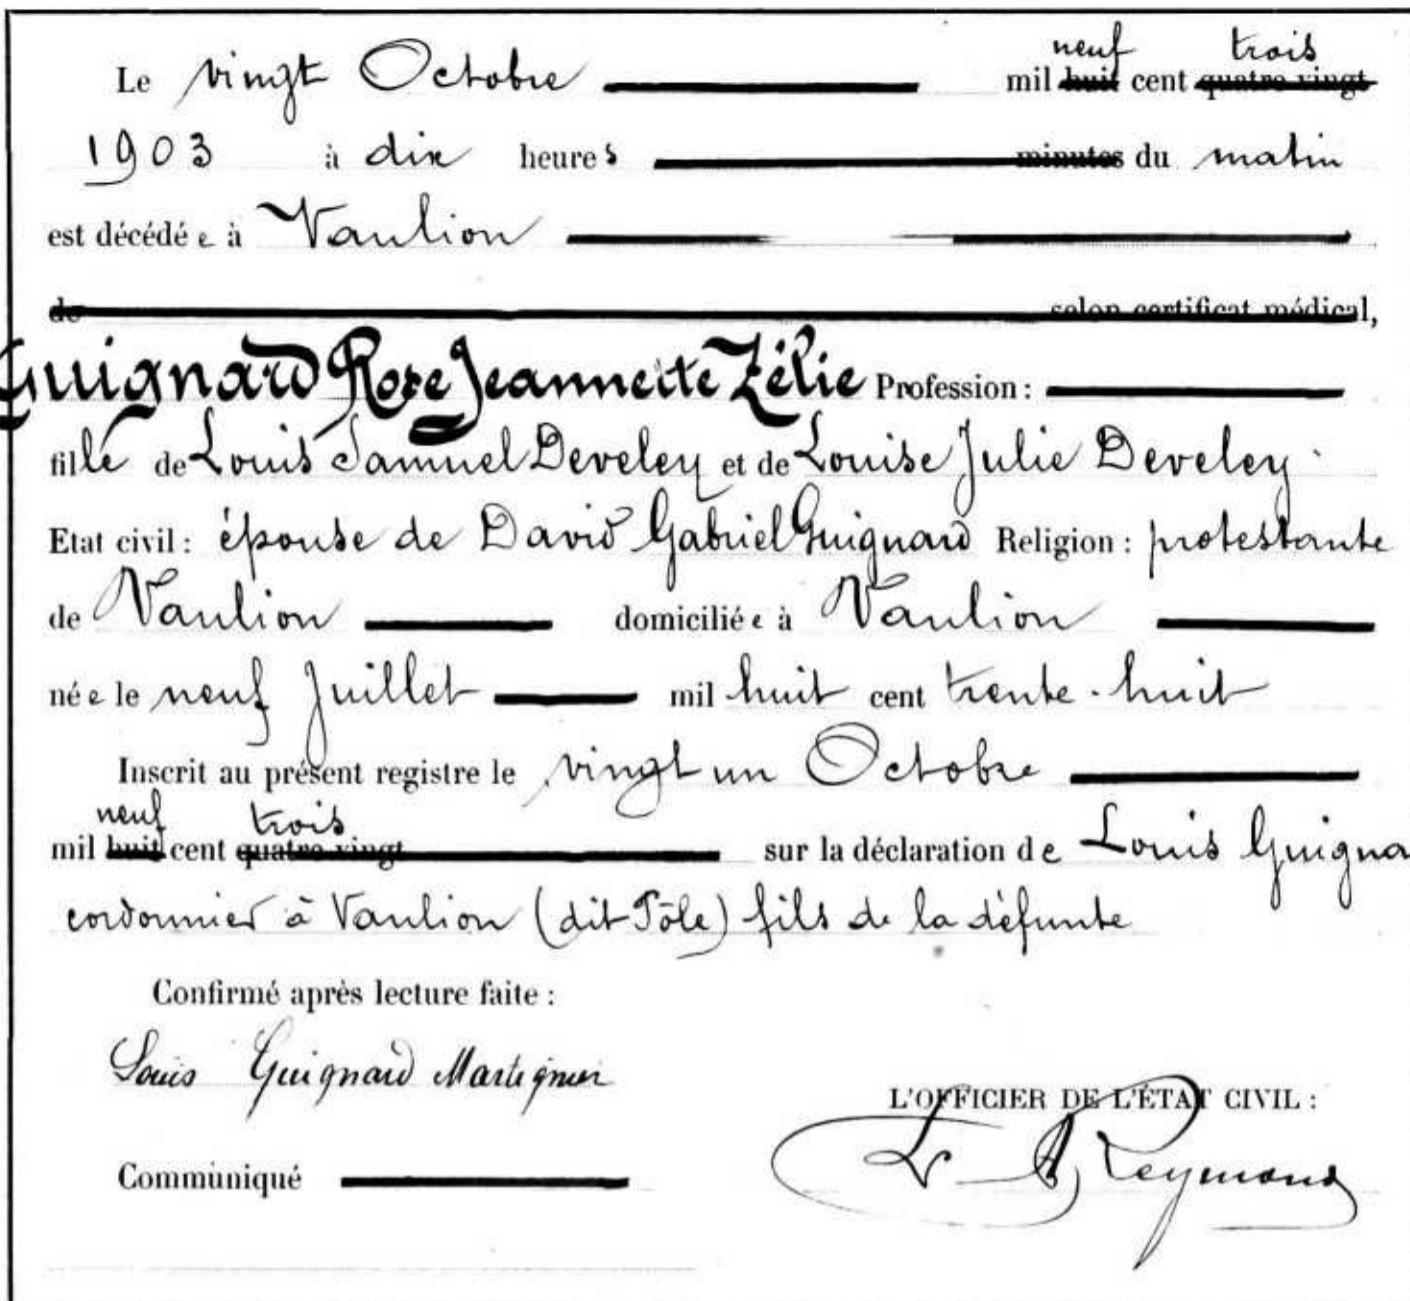 neuf trois
Le vingt Octobre mil huit cent quatre vingt
1903 à dix heures minutes du matin
est décédée à Vaulion
de selon certificat médical,
Guignard Rose Jeannette Zélie Profession :
fille de Louis Samuel Develey et de Louise Julie Develey
Etat civil : épouse de David Gabriel Guignard Religion : protestante
de Vaulion domiciliée à Vaulion
née le neuf Juillet mil huit cent trente-huit
Inscrit au présent registre le vingt un Octobre
neuf trois
mil huit cent quatre vingt sur la déclaration de Louis Guigna
cordonnier à Vaulion (dit Pôle) fils de la défunte
Confirmé après lecture faite :
Louis Guignard Martignier
L'OFFICIER DE L'ÉTAT CIVIL :
Ls A Reymond
Communiqué